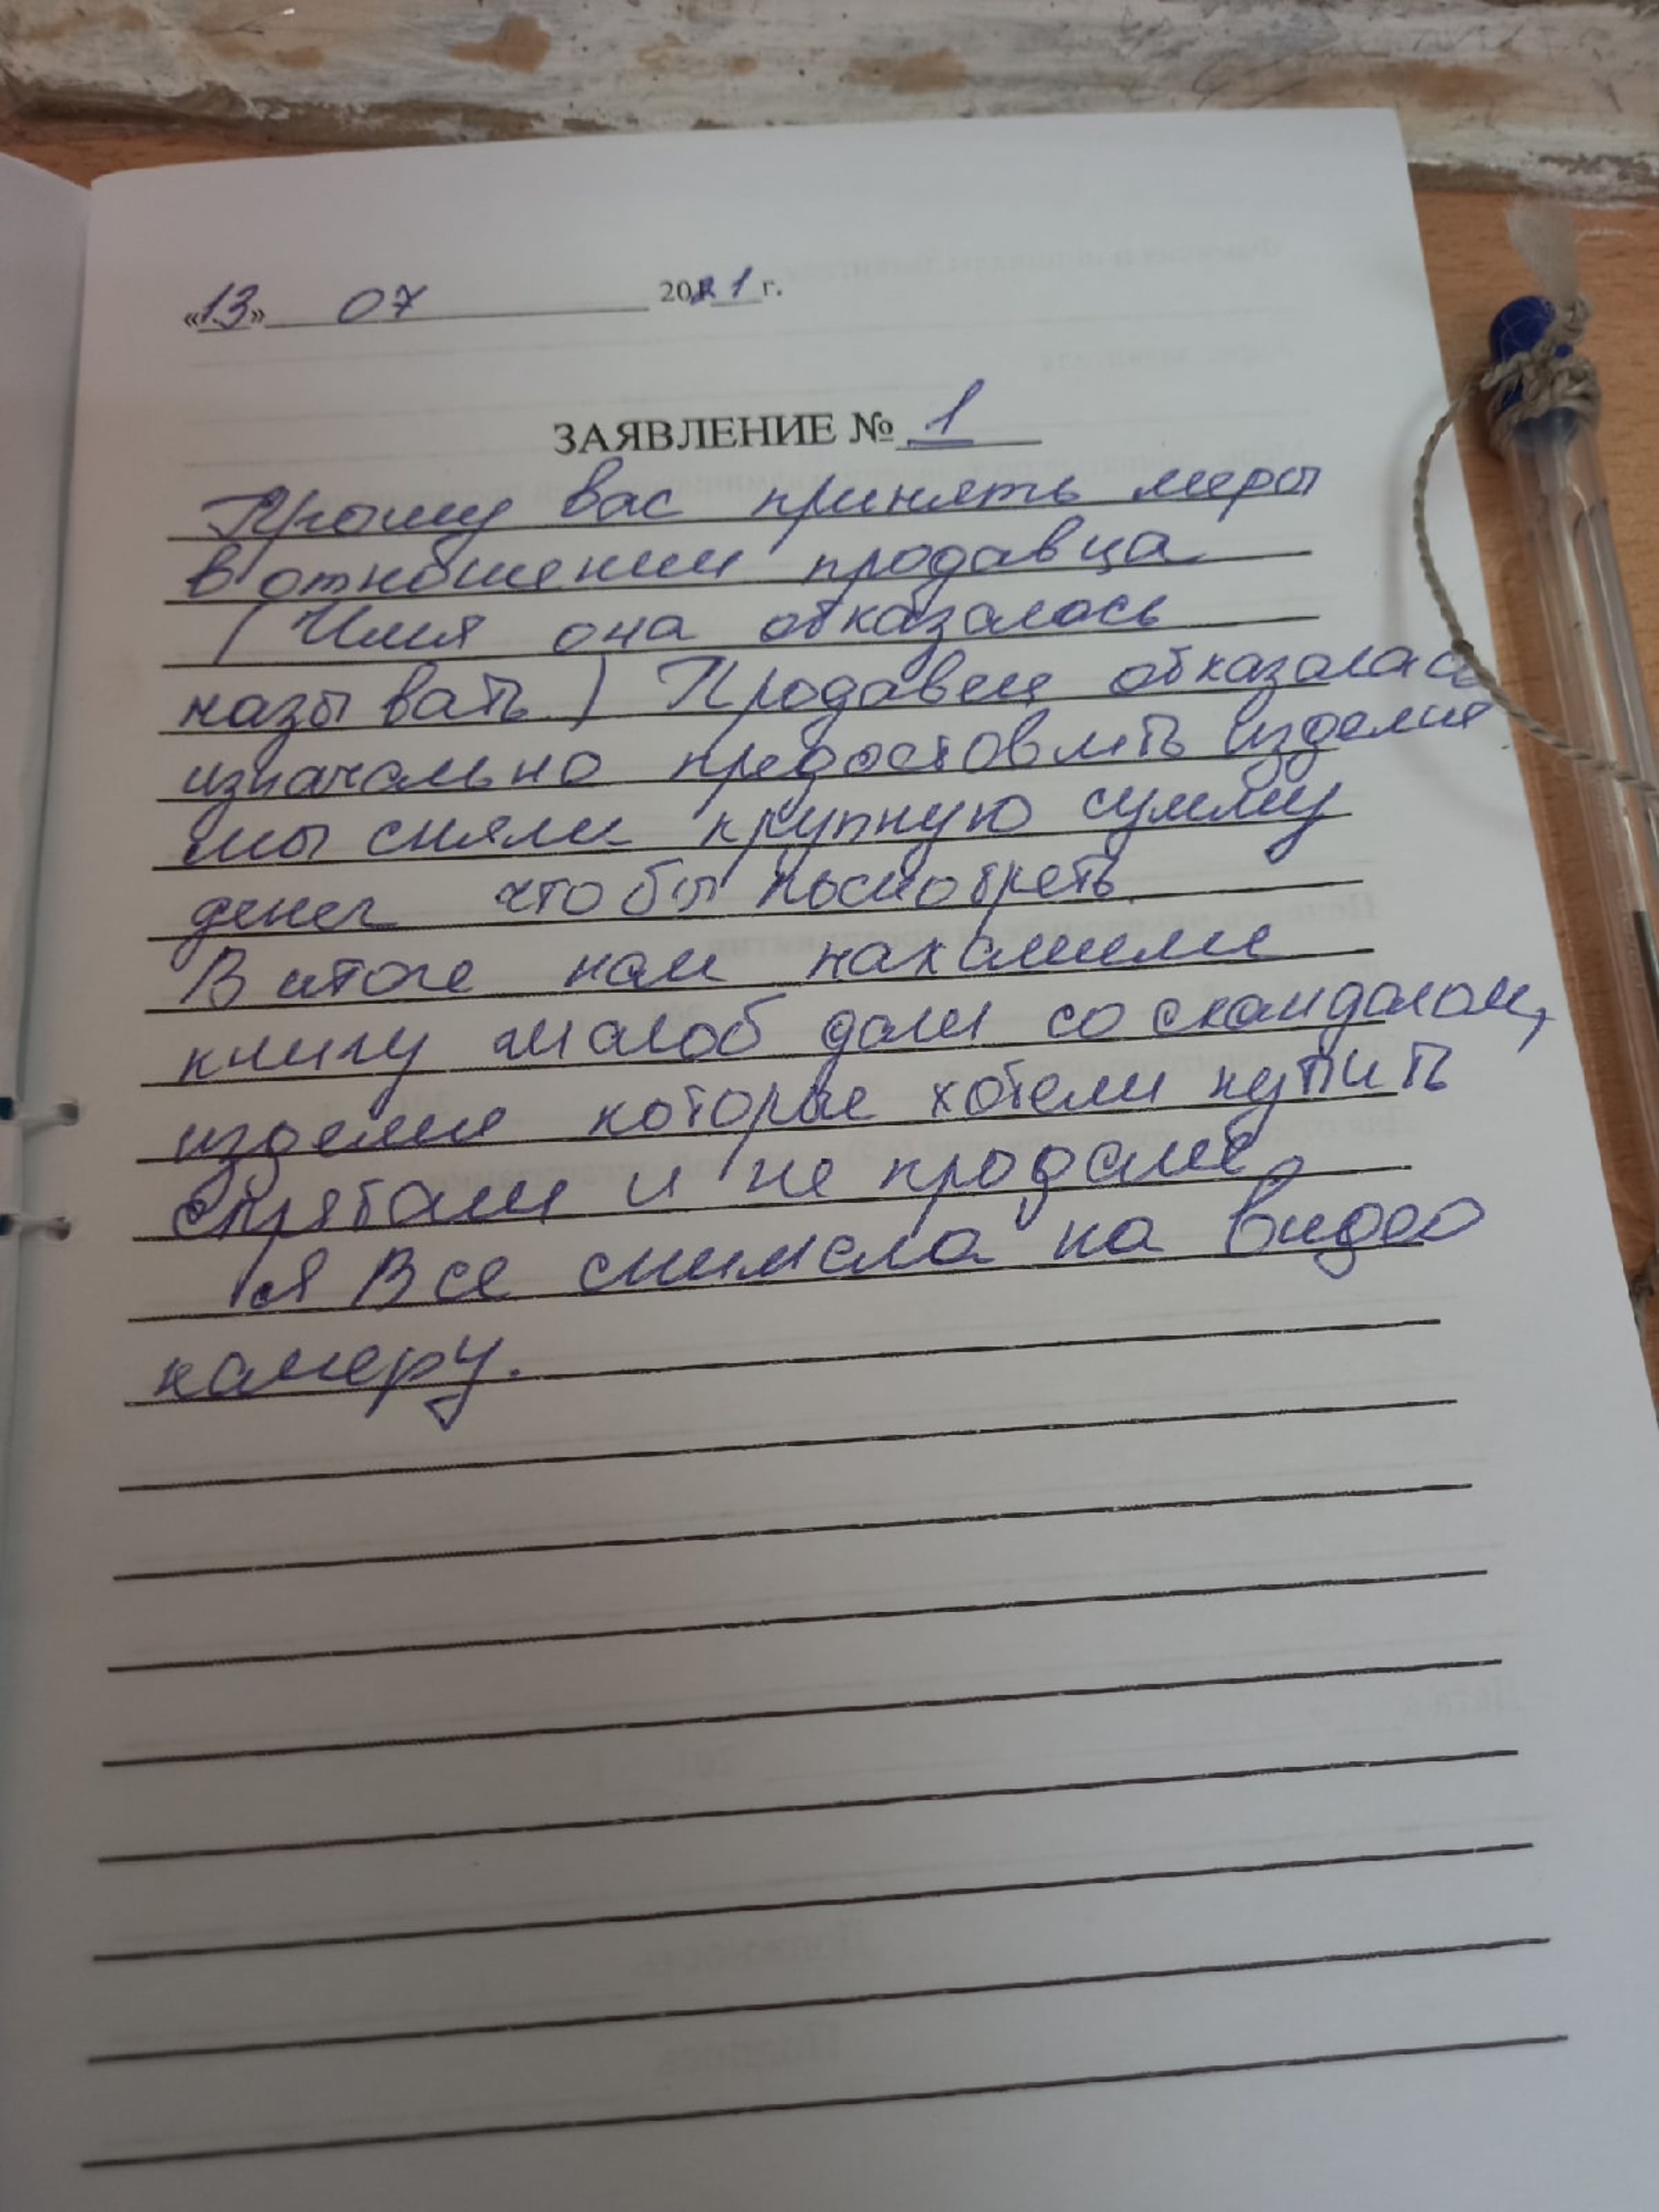 «13» 07 2021 г.
ЗАЯВЛЕНИЕ № 1
Прошу вас принять меры
в отношении продавца
(Имя она отказалась
называть) Продавец отказалась
изначально предоставлять изделия
мы сняли крупную сумму
денег чтобы посмотреть.
В итоге нам нахамили
книгу жалоб дали со скандалом,
изделия которые хотели купить
спрятали и не продали.
Я Все снимала на видео
камеру.